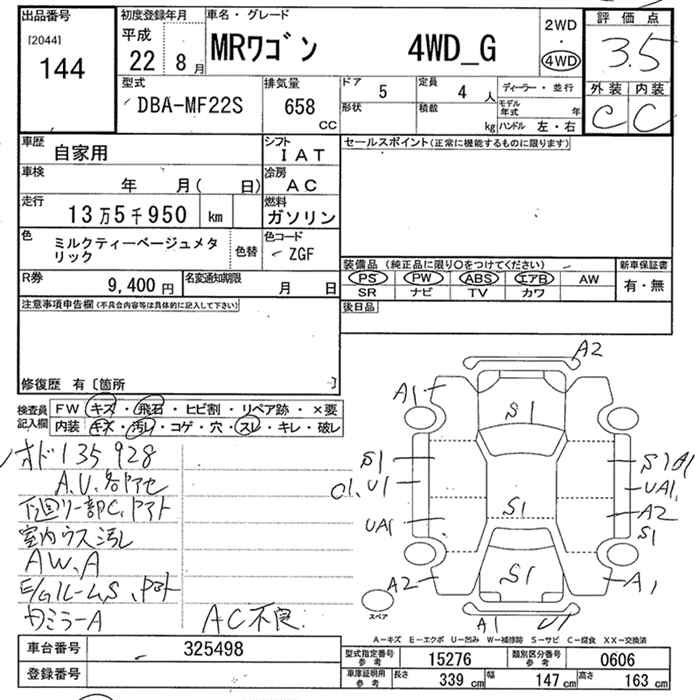 出品番号
[2044]
144
初度登録年月
平成
22 8月
車名・グレード
MRワゴン 4WD_G
2WD
・
4WD
評価点
3.5
外装 内装
C C
型式
DBA-MF22S
排気量
658
CC
ドア 5
形状
定員 4 人
積載 kg
ディーラー・並行
モデル年式 年
ハンドル 左・右
車歴
自家用
シフト
IAT
セールスポイント(正常に機能するものに限ります)
車検
年 月( 日)
冷房
AC
走行
13万5千950 km
燃料
ガソリン
色
ミルクティーベージュメタリック
色替
色コード
ZGF
装備品(純正品に限り○をつけてください)
PS PW ABS エアB AW
SR ナビ TV カワ
新車保証書
有・無
R券
9,400円
名変通知期限
月 日
後日品
注意事項申告欄(不具合内容等は具体的に記入して下さい)
修復歴 有〔箇所 〕
検査員記入欄
FW キズ・飛石・ヒビ割・リペア跡・×要
内装 キズ・汚レ・コゲ・穴・スレ・キレ・破レ
オド135928
A.U.各アセ
下回リ一部C、アト
室内ウス汚レ
AW.A
E/GルームS、アト
カミラーA
AC不良
A2
A1
S1
S1
O1.U1
UA1
A2
S1
S1
UA1
A2
S1
A1
A1 U1
スペア
A―キズ E―エクボ U―凹み W―補修跡 S―サビ C―腐食 XX―交換済
車台番号 325498
登録番号
型式指定番号 参考 15276
類別区分番号 参考 0606
車庫証明用 参考 長さ 339 cm 幅 147 cm 高さ 163 cm